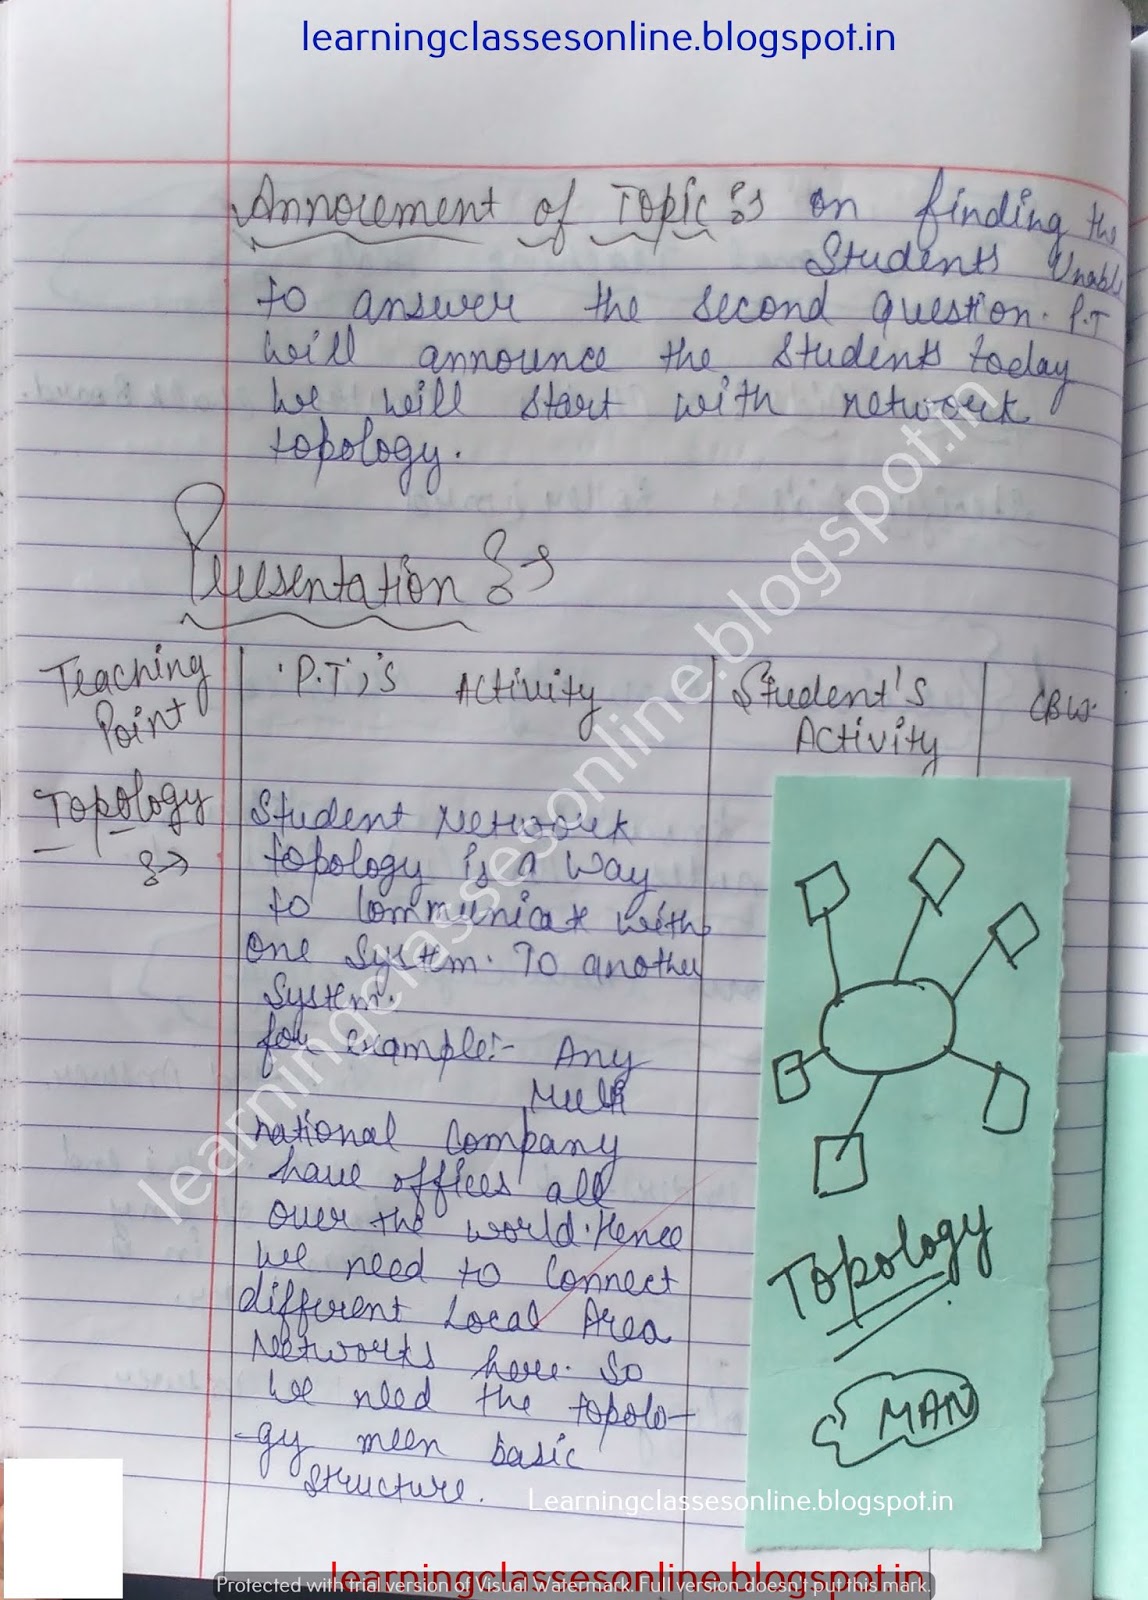 learningclassesonline.blogspot.in
Annoucement of Topic :→ on finding the
Students Unable
to answer the second question. P.T
will announce the students today
we will start with network
topology.
Presentation :→
Teaching Point
'P.T,'s Activity
Student's Activity
CBW.
Topology
:→
Student Network
topology is a way
to communicate with
one system. To another
system.
for example:- Any
Multi
national company
have offices all
over the world. Hence
we need to connect
different Local Area
Networks here. So
we need the topolo-
-gy meen basic
structure.
Topology
MAN
learningclassesonline.blogspot.in
Learningclassesonline.blogspot.in
learningclassesonline.blogspot.in
Protected with trial version of Visual Watermark. Full version doesn't put this mark.